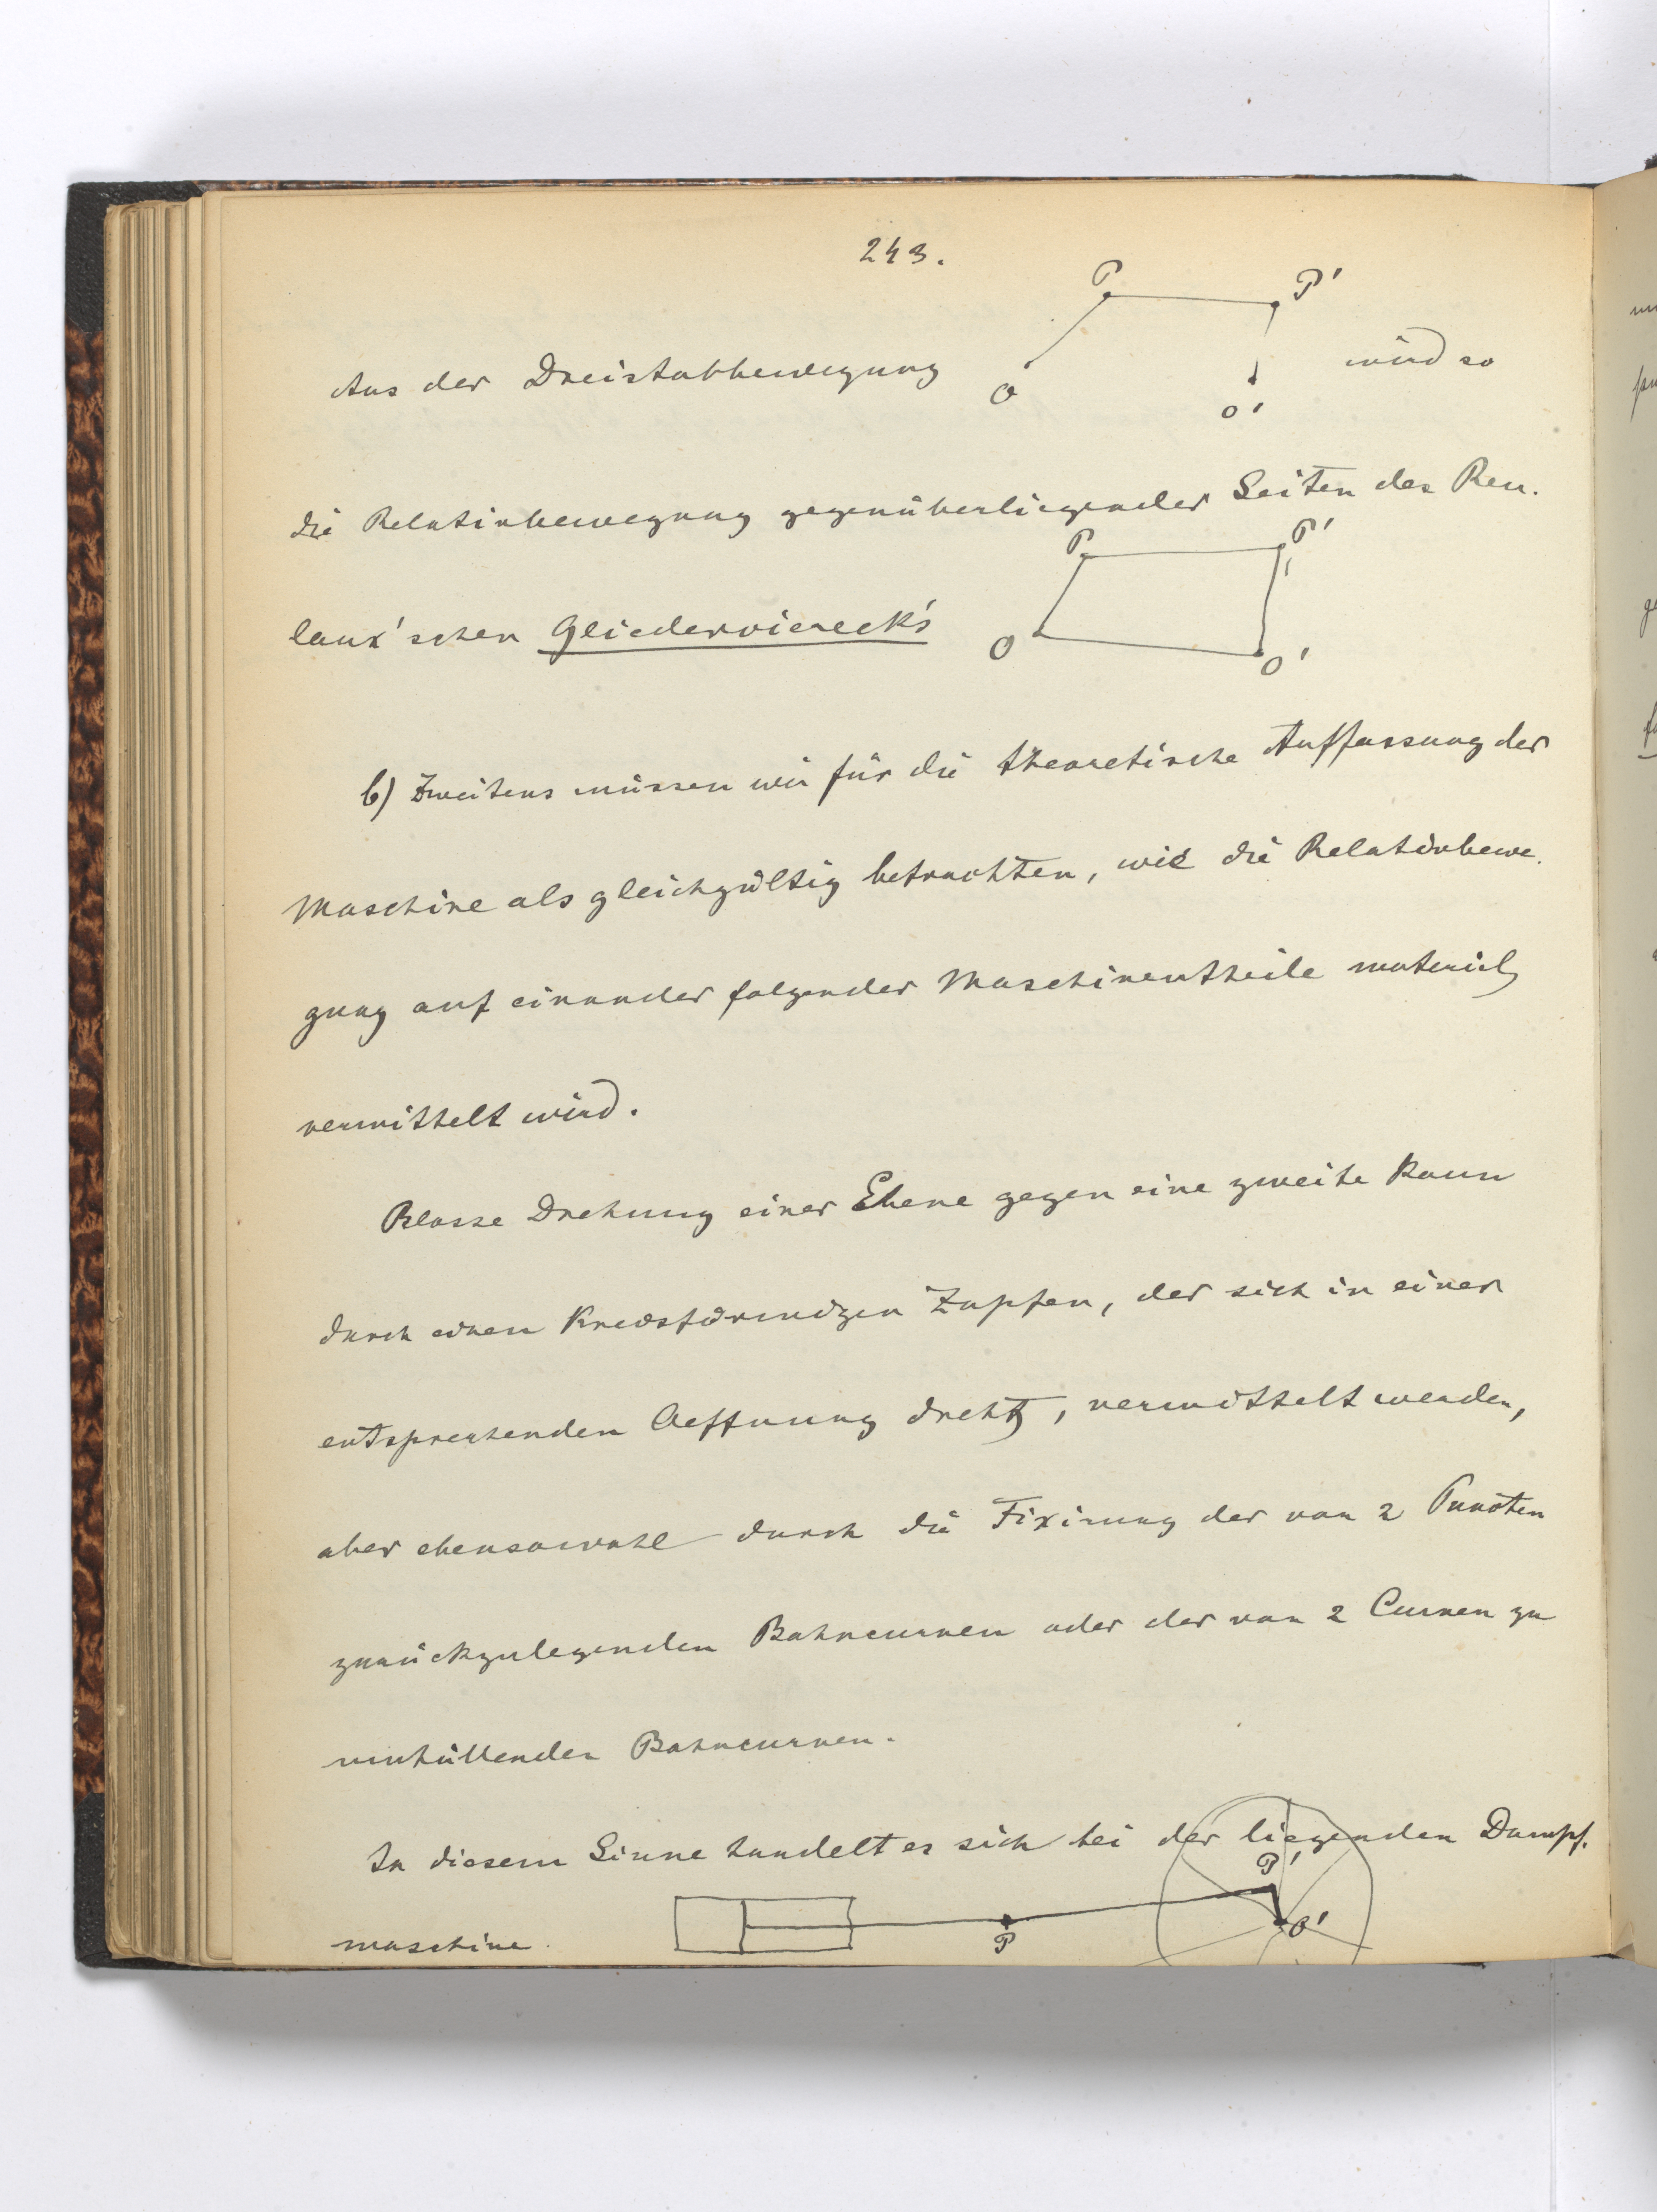 243.
P P'
Aus der Dreistabbewegung wird so
O O'
die Relativbewegung gegenüberliegender Seiten des Reu-
P P'
leaux'schen Gliedervierecks
O O'
b) Zweitens müssen wir für die theoretische Auffassung der
Maschine als gleichgültig betrachten, wie die Relativbewe-
gung auf einander folgender Maschinentheile materiel
vermittelt wird.
Blosse Drehung einer Ebene gegen eine zweite kann
durch einen kreisförmigen Zapfen, der sich in einer
entsprechenden Oeffnung dreht, vermittelt werden,
aber ebensowohl durch die Fixirung der von 2 Puncten
zurückzulegenden Bahncurven oder der von 2 Curven zu
umhüllenden Bahncurven.
In diesem Sinne handelt es sich bei der liegenden Dampf-
P'
maschine.
P O'